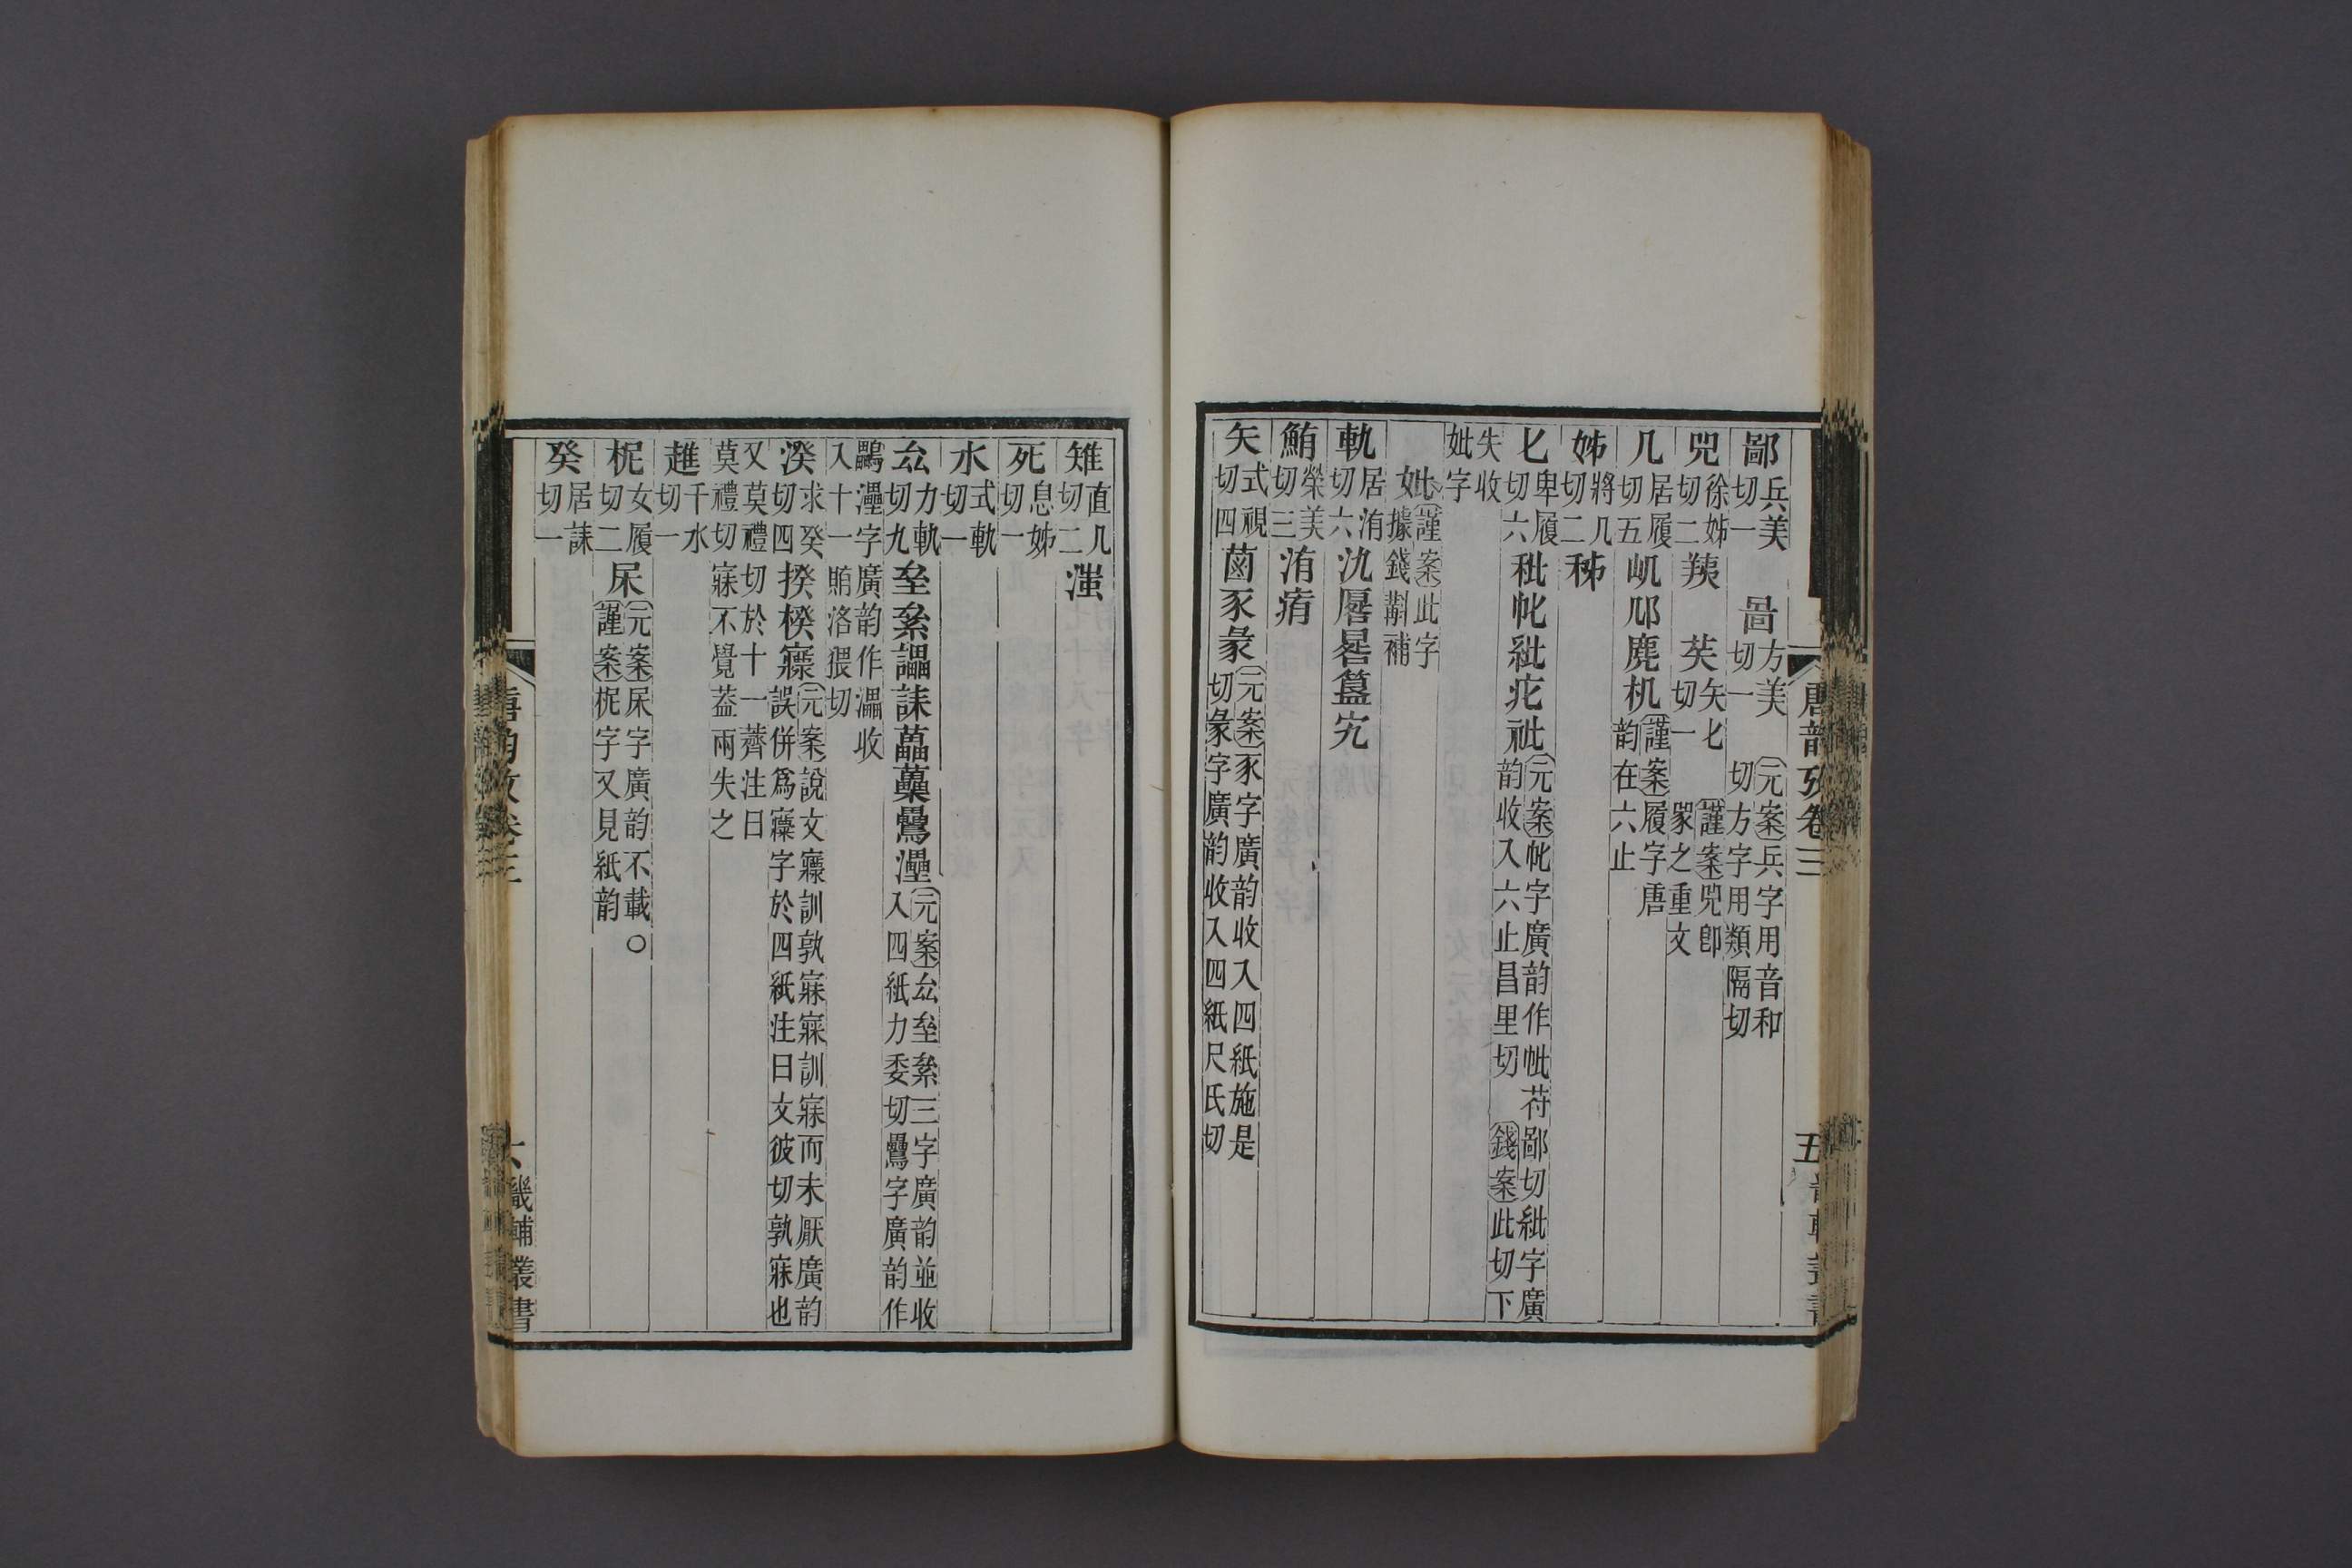 鄙兵美切一 啚方美切一 元案兵字用音和切方字用類隔切
兕徐姊切二羠 𦮺矢匕切一 謹案兕卽𤉡之重文
几居履切五屼邔麂机謹案履字唐韵在六止
姊將几切二秭
匕卑履切六秕𠤎紕疕祉元案𠤎字廣韵作𡵆苻鄙切紕字廣韵收入六止昌里切 錢案此切下
失收妣字
妣謹案此字據錢斠補
軌居洧切六氿厬晷簋宄
鮪榮美切三洧痏
矢式視切四菡豕彖元案豕字廣韵收入四紙施是切彖字廣韵收入四紙尺氏切
唐韵攷卷三
五
雉直几切二滍
死息姊切一
水式軌切一
厽力軌切九垒絫讄誄藟櫐鸓灅元案厽垒絫三字廣韵並收入四紙力委切鸓字廣韵作
鸓灅字廣韵作灅收入十一賄洛猥切
湀求癸切四揆楑㝱元案說文㝱訓孰寐寐訓寐而未厭廣韵誤併爲㝱字於四紙注曰文彼切孰寐也
又莫禮切於十一薺注曰莫禮切寐不覺葢兩失之
趡千水切一
柅女履切二㞙元案㞙字廣韵不載○謹案柅字又見紙韵
癸居誄切一
唐韵攷卷三
六 畿輔叢書